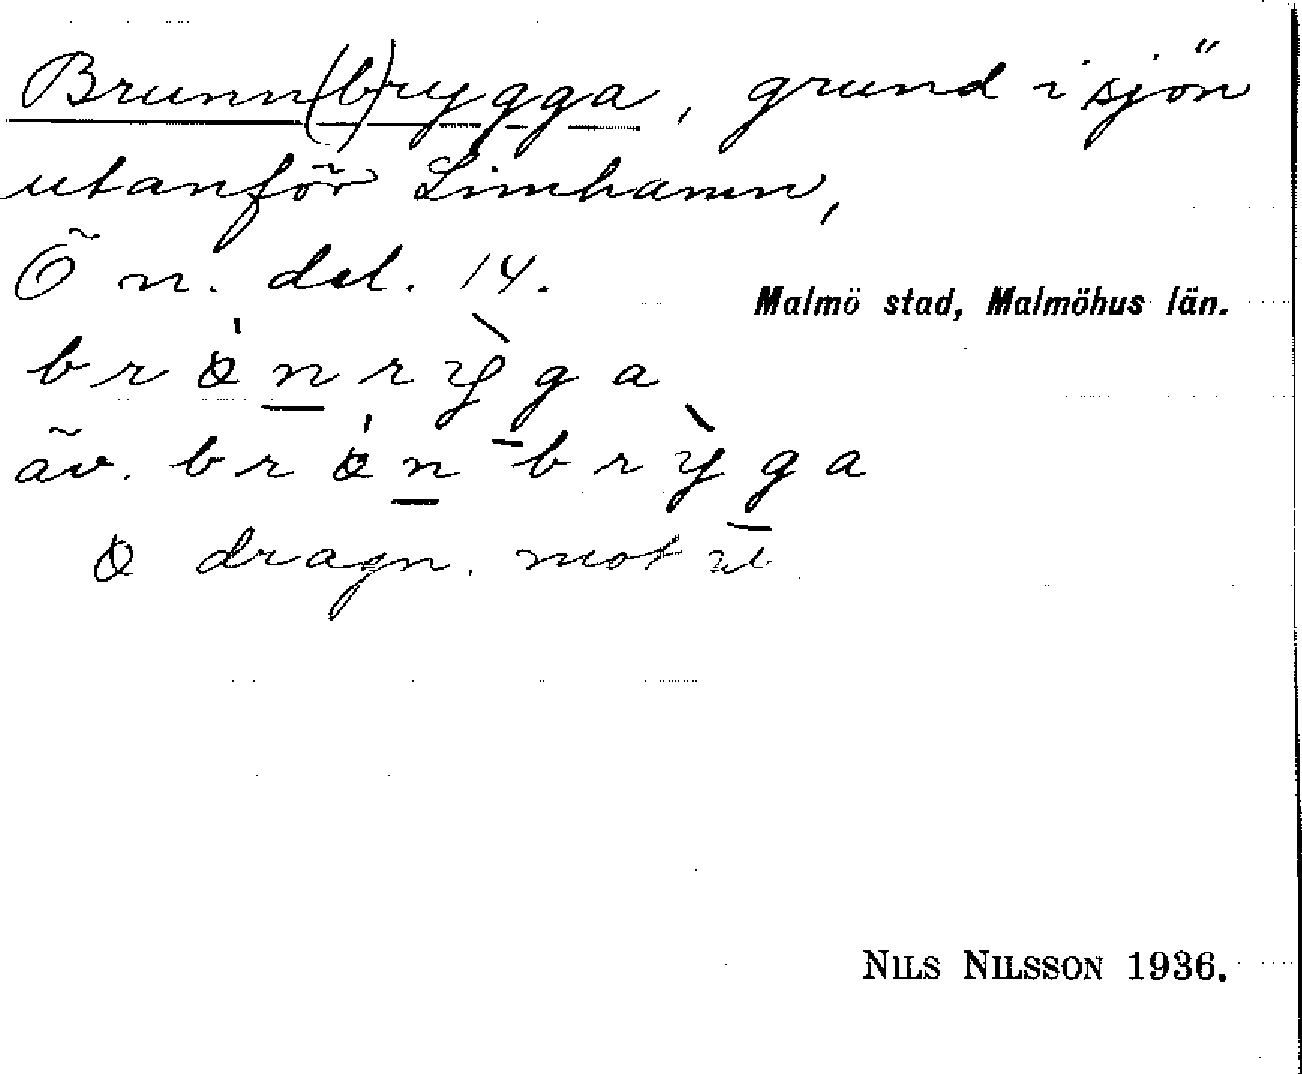 Brunn(b)rygga, grund i sjön
utanför Limhamn,
Ö n. del. 14.
Malmö stad, Malmöhus län.
brònrỳga
äv. brònbrỳga
dragn. mot
NILS NILSSON 1936.